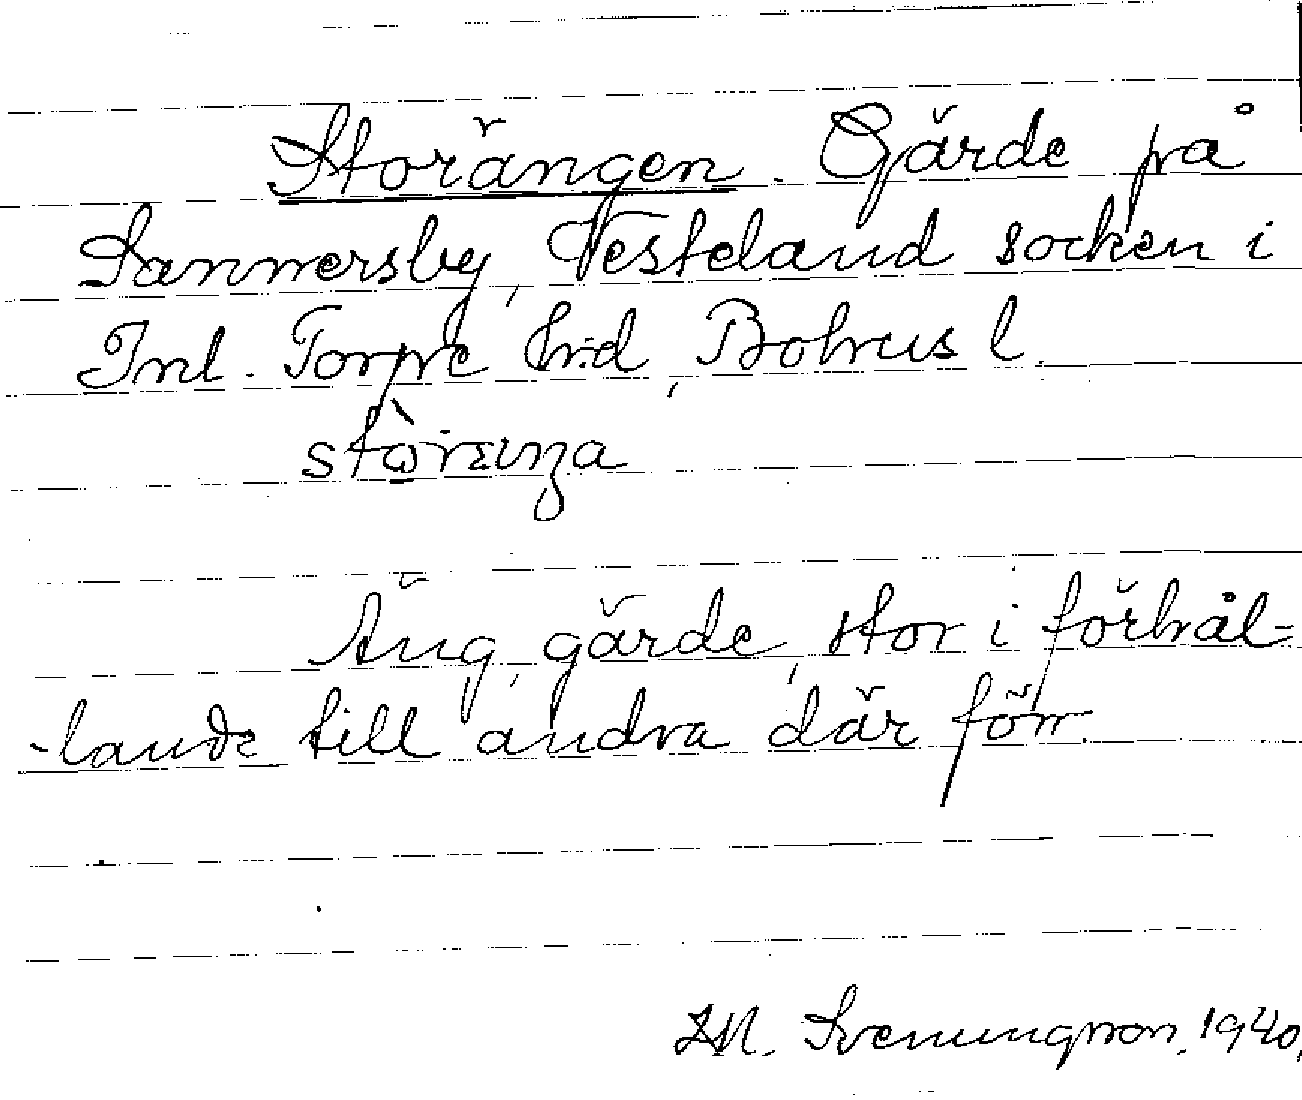 Storängen. Gärde på
Sannersby, Vesteland socken i
Inl. Torpe hrd, Bohus l.
Äng, gärde, stor i förhål-
-lande till andra där förr
Svenungsson. 1940.